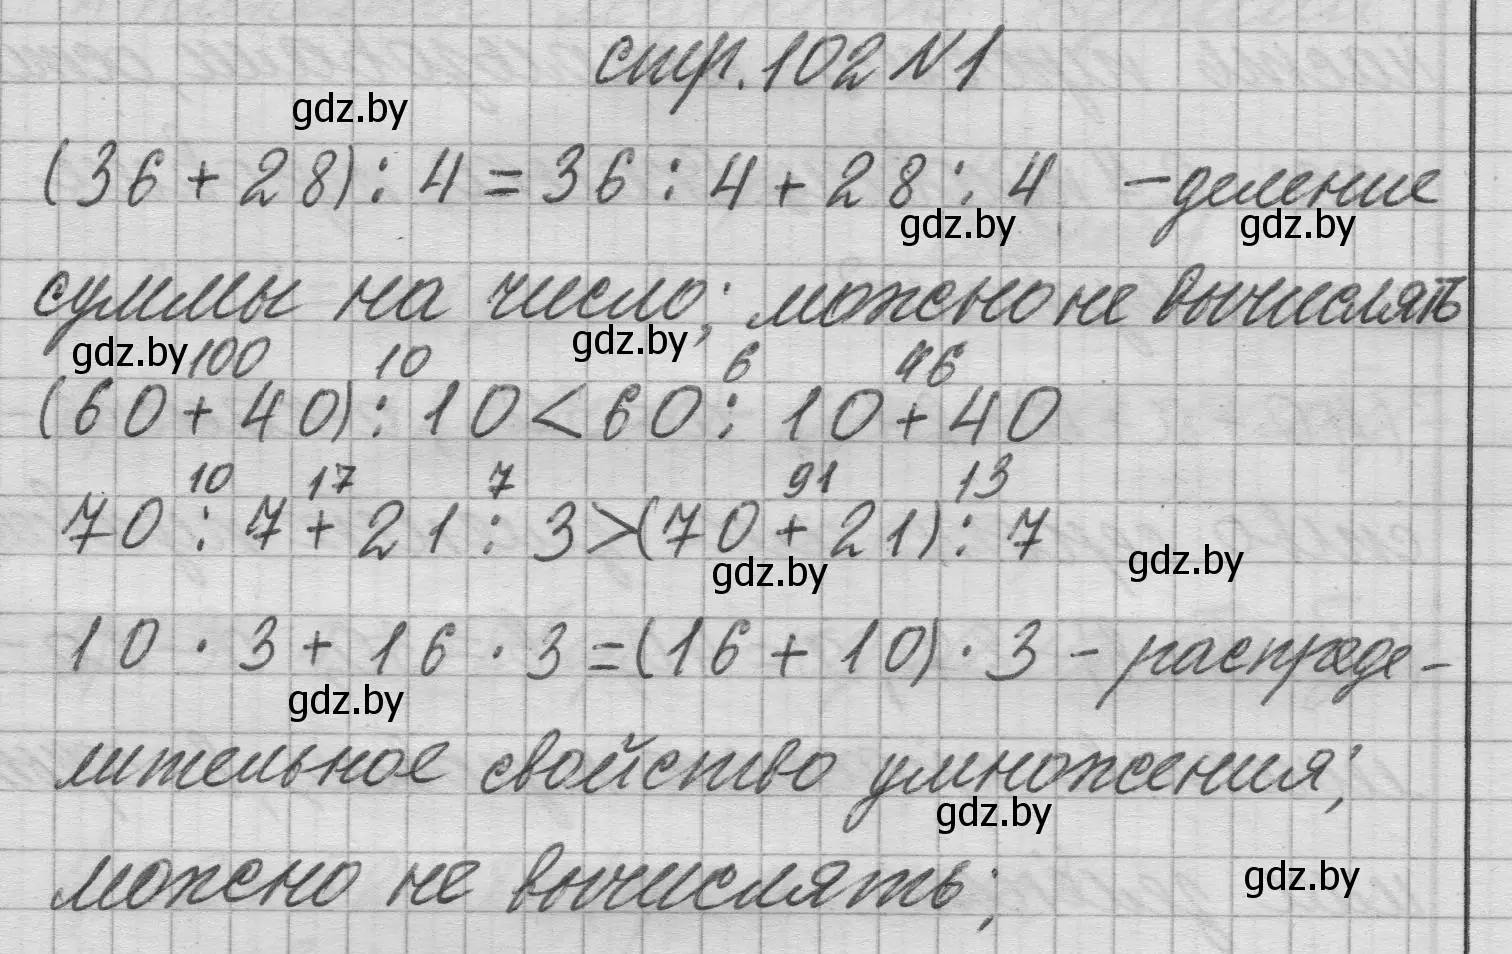 стр. 102 №1
gdz.by
(36 + 28) : 4 = 36 : 4 + 28 : 4 – деление
gdz.by gdz.by
суммы на число; можно не вычислять
gdz.by gdz.by
100 10 6 46
(60 + 40) : 10 < 60 : 10 + 40
10 17 7 91 13
70 : 7 + 21 : 3 > (70 + 21) : 7
gdz.by gdz.by
10 · 3 + 16 · 3 = (16 + 10) · 3 – распреде-
gdz.by
лительное свойство умножения;
gdz.by
можно не вычислять;
gdz.by